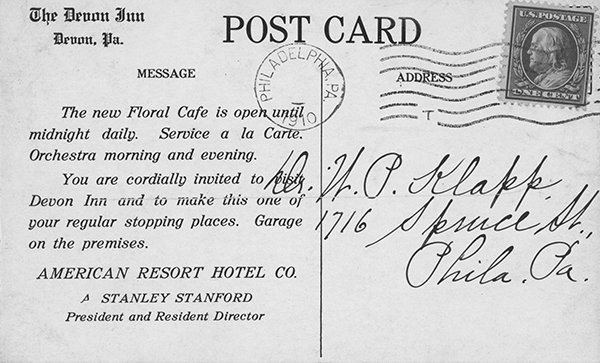 The Devon Inn
Devon, Pa.
POST CARD
U.S. POSTAGE
ONE CENT
PHILADELPHIA, PA
1910
T
MESSAGE
ADDRESS
The new Floral Cafe is open until
midnight daily. Service a la Carte.
Orchestra morning and evening.
You are cordially invited to visit
Devon Inn and to make this one of
your regular stopping places. Garage
on the premises.
AMERICAN RESORT HOTEL CO.
STANLEY STANFORD
President and Resident Director
Dr. W. P. Klapp,
1716 Spruce St.,
Phila. Pa.